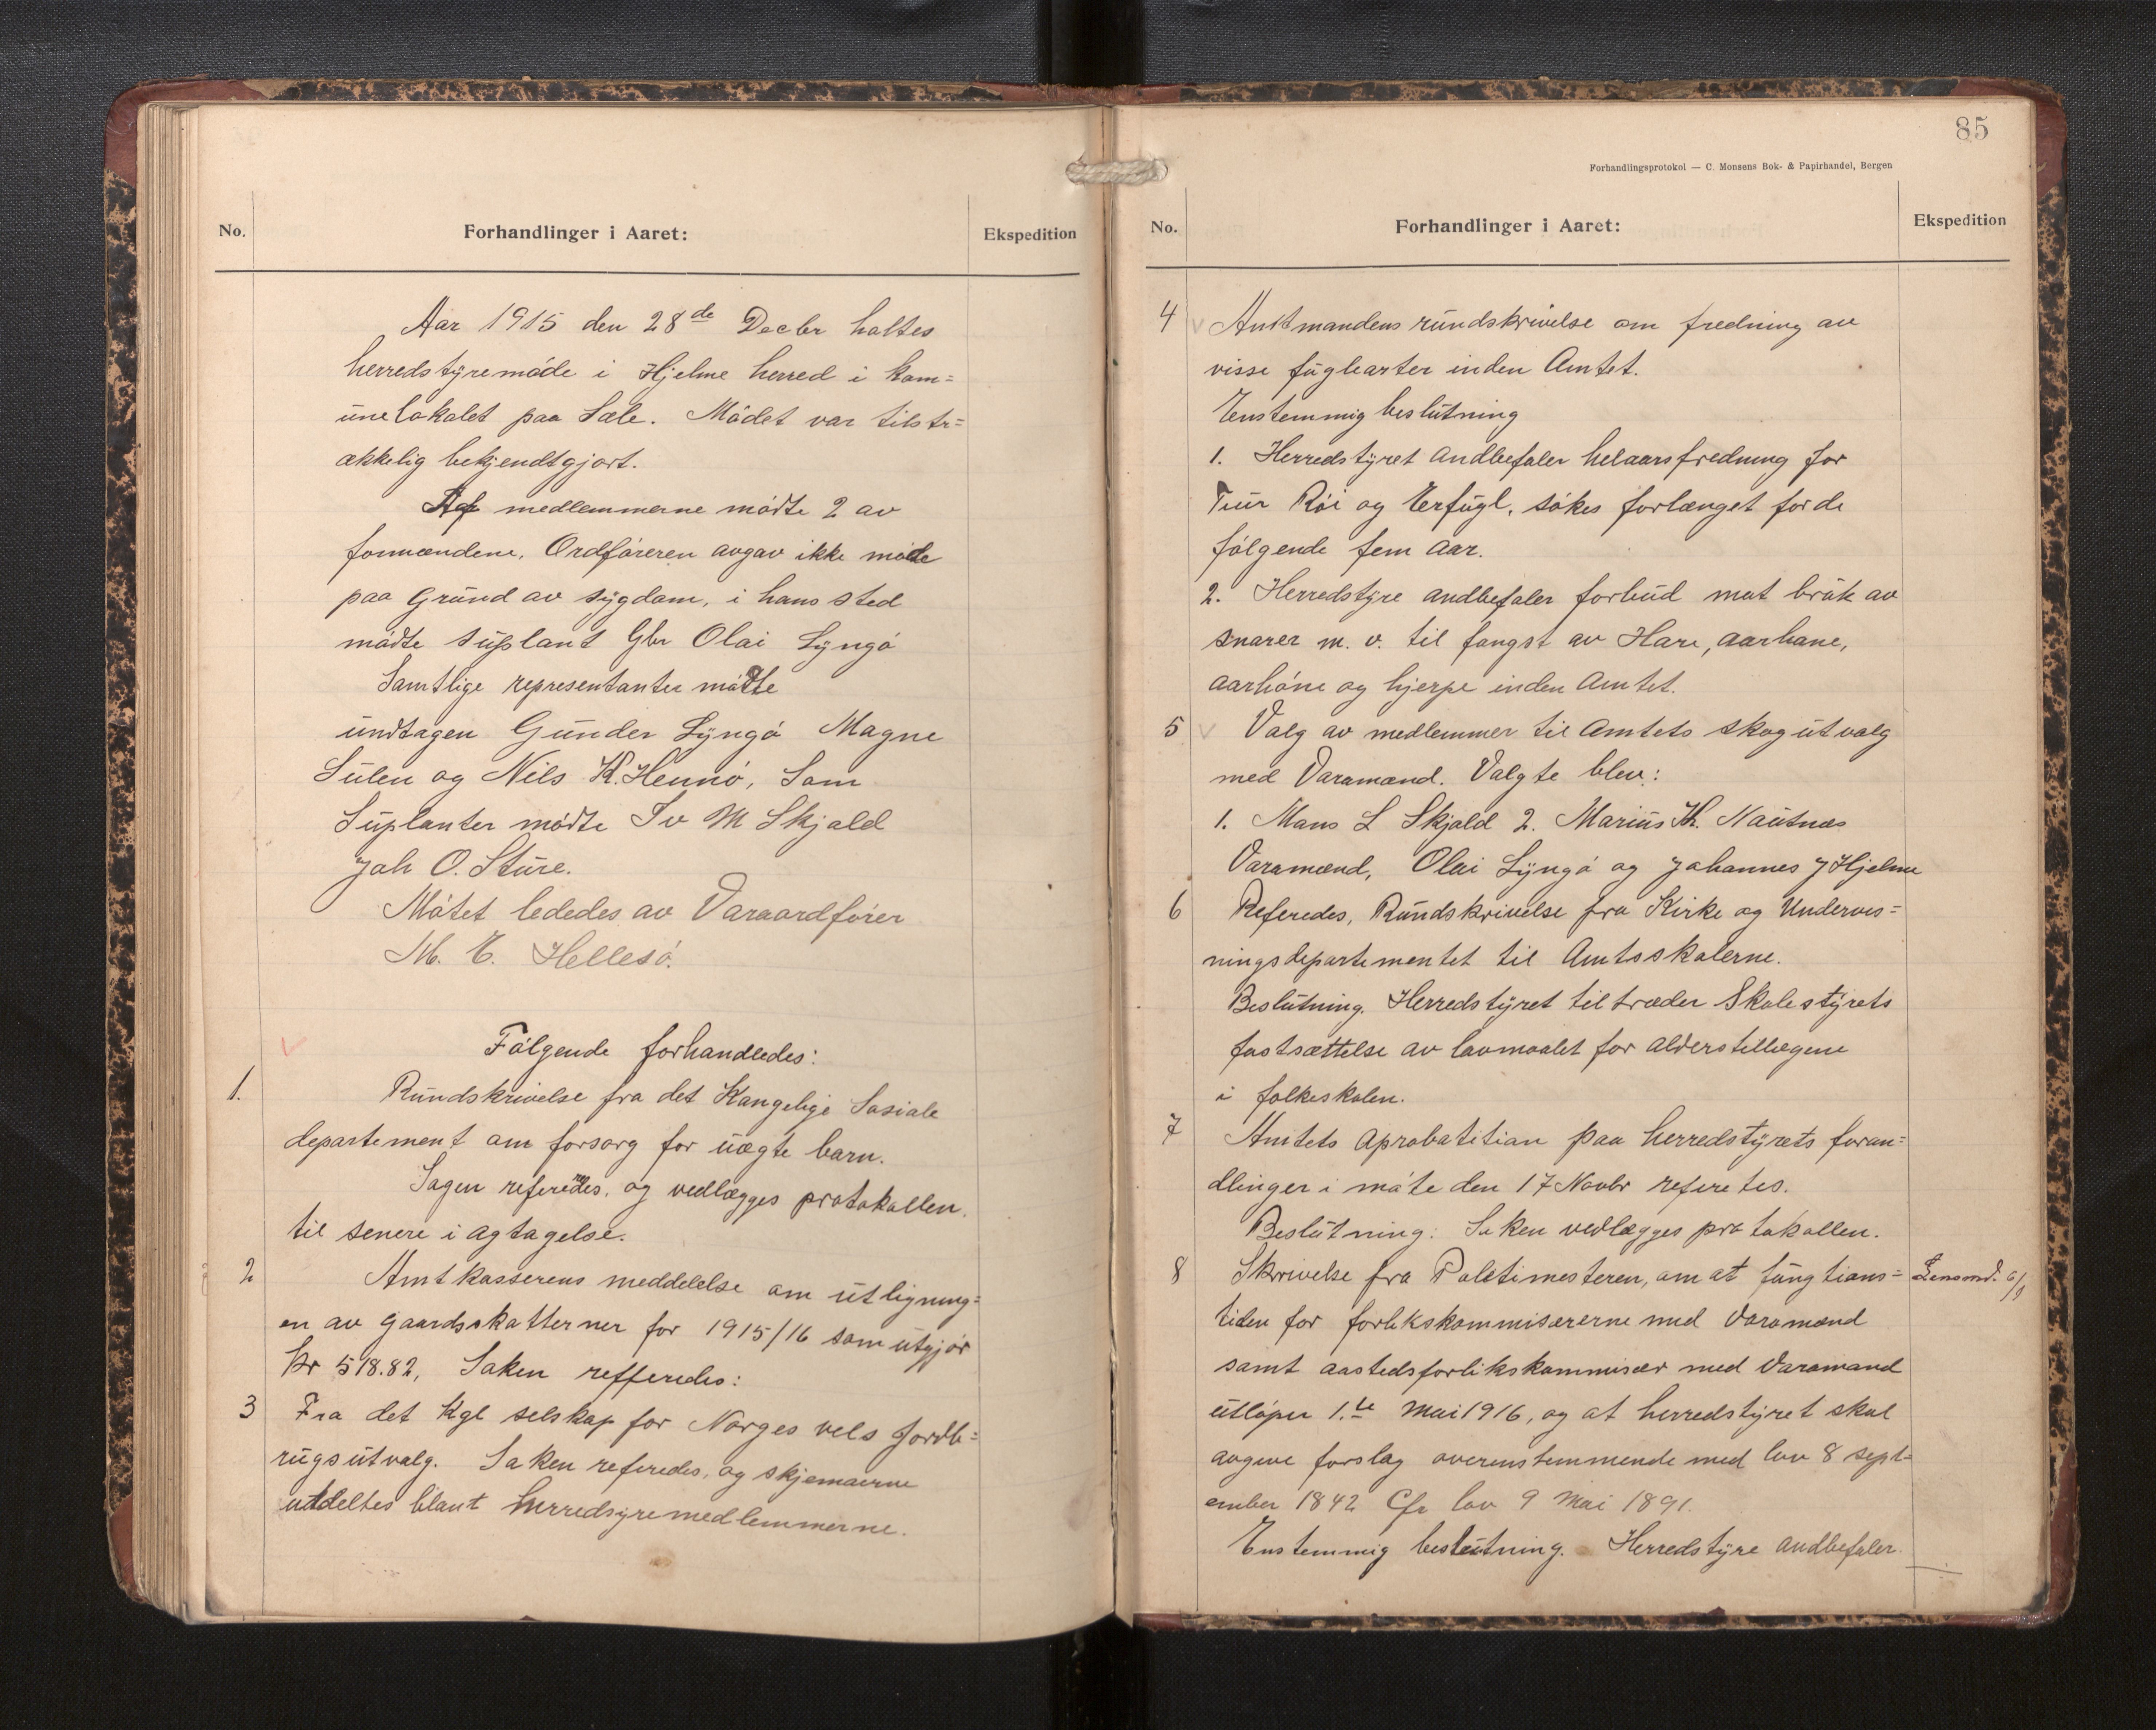 No.
Forhandlinger i Aaret:
Ekspedition
Aar 1915 den 28de Decbr holtes
herredstyremóde i Hjelme herred i kom=
unelokalet paa Sæle. Módet var tilstr=
ækkelig bekjendtgjort.
Af medlemmerne módte 2 av
formændene, Ordfóreren avgav ikke móde
paa Grund av sygdom, i hans sted
módte suplant Gbr Olai Lyngó
Samtlige representanter módte
undtagen Gunder Lyngó Magne
Sulen og Nils K. Hennó, Som
Suplanter módte Sv M Skjold
Joh O. Sture.
Mótet lededes av Varaordfórer
M. E. Hellesó.
Fólgende forhandledes:
1.
Rundskrivelse fra det Kongelige Sosiale
departement om forsorg for uægte barn.
Sagen refereredes, og vedlægges protokollen.
til senere iagtagelse.
2
Amtkasserens meddelelse om utligning=
en av gaardsskatterner for 1915/16 som utgjór
kr 518.82, Saken refferedes:
3
Fra det Kgl selskap for Norges vels Jordb=
rugsutvalg. Saken referedes, og skjemaerne
utdeltes blant herredsyremedlemmerne.
85
Forhandlingsprotokol — C. Monsens Bok- & Papirhandel, Bergen
No.
Forhandlinger i Aaret:
Ekspedition
4
Amtmandens rundskrivelse om fredning av
visse fuglearter inden Amtet.
Enstemmig beslutning
1. Herredstyret andbefaler helaarsfredning for
Tiur Rói og Erfugl, sókes forlænget for de
fólgende fem aar.
2. Herredstyre andbefaler forbud mot bruk av
snarer m. v. til fangst av Hare, aarhane,
aarhóne og hjerpe inden Amtet.
5
Valg av medlemmer til Amtets skogutvalg
med Varamænd. Valgte blev:
1. Mons L Skjold 2. Marius Th. Nautnes
Varamænd, Olai Lyngó og Johannes J Hjelme
6
Referedes, Rundskrivelse fra Kirke og Undervis=
ningsdepartementet til Amtsskolerne.
Beslutning. Herredstyret tiltræder Skolestyrets
fastsættelse av lavmaalet for alderstillægene
i folkeskolen.
7
Amtets aprobatition paa herredstyrets foran=
dlinger i móte den 17 Novbr referetes.
Beslutning: Saken vedlægges protokollen.
8
Skrivelse fra Politimesteren, om at fungtions=
tiden for forlikskommisærerne med Varamænd
samt aastedsforlikskommisær med Varamand
utlóper 1.te Mai 1916, og at herredstyret skal
avgive forslag overenstemmende med lov 8 sept=
ember 1842 Cfr lov 9 Mai 1891.
Enstemmig beslutning. Herredstyre andbefaler